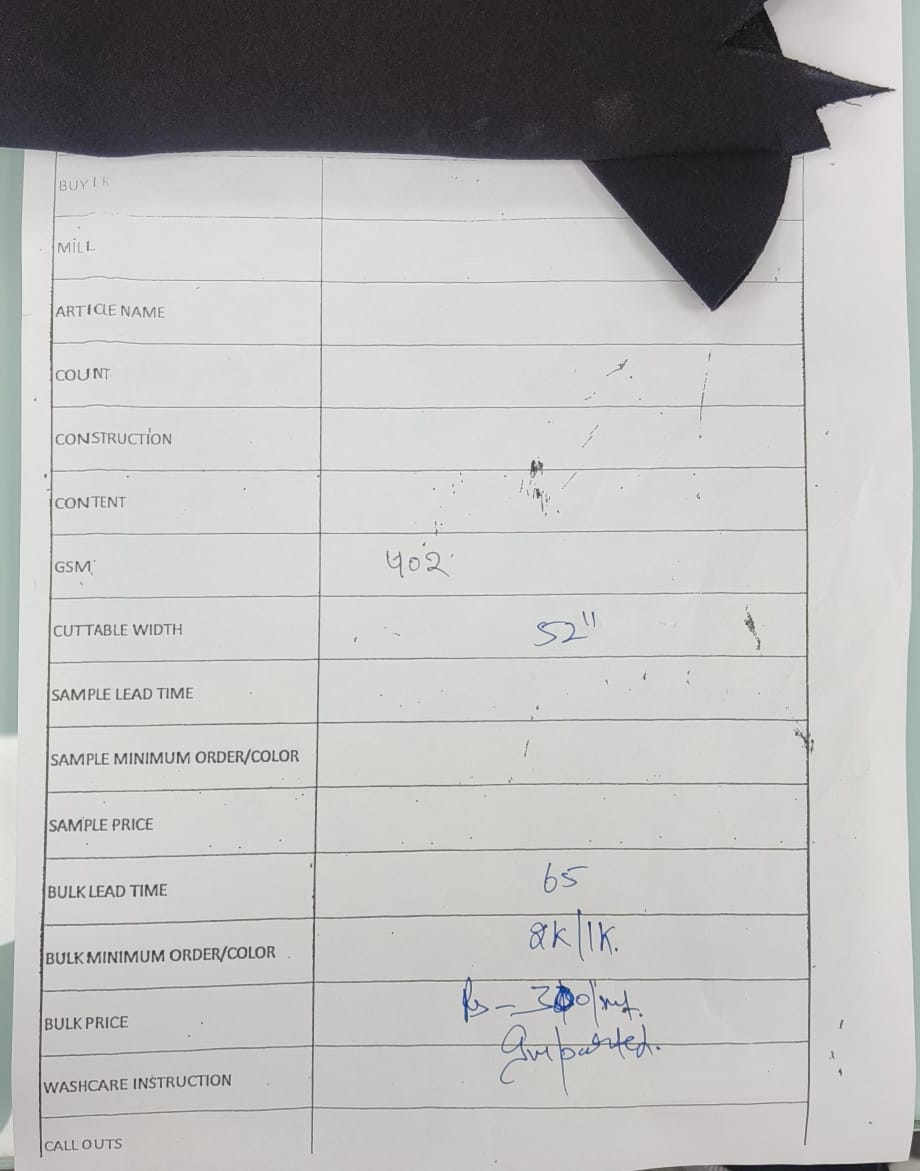 BUYER
MILL
ARTICLE NAME
COUNT
CONSTRUCTION
CONTENT
GSM 402
CUTTABLE WIDTH 52"
SAMPLE LEAD TIME
SAMPLE MINIMUM ORDER/COLOR
SAMPLE PRICE
BULK LEAD TIME 65
BULK MINIMUM ORDER/COLOR 2K/1K.
BULK PRICE Rs-
Imported.
WASHCARE INSTRUCTION
CALL OUTS